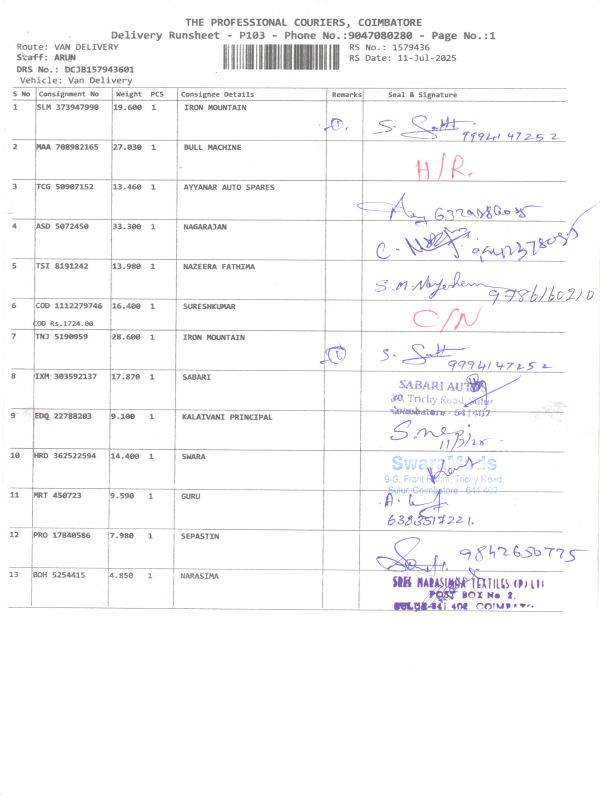 THE PROFESSIONAL COURIERS, COIMBATORE
Delivery Runsheet - P103 - Phone No.:9047080280 - Page No.:1
Route: VAN DELIVERY RS No.: 1579436
Staff: ARUN RS Date: 11-Jul-2025
DRS No.: DCJB157943601
Vehicle: Van Delivery
S No Consignment No Weight PCS Consignee Details Remarks Seal & Signature
1 SLM 373947990 19.600 1 IRON MOUNTAIN ① S.
9994147252
2 MAA 708982165 27.030 1 BULL MACHINE H/R.
3 TCG 50907152 13.460 1 AYYANAR AUTO SPARES
4 ASD 5072450 33.300 1 NAGARAJAN C.
5 TSI 8191242 13.980 1 NAZEERA FATHIMA S.M.
9786160210
6 COD 1112279746 16.400 1 SURESHKUMAR C/N
COD Rs.1724.00
7 TNJ 5190959 28.600 1 IRON MOUNTAIN ① S.
9994147252
8 IXM 303592137 17.870 1 SABARI SABARI AUTOS
Trichy Road, Sulur
Coimbatore - 641402
9 EDQ 22788203 9.100 1 KALAIVANI PRINCIPAL S.
10 HRD 362522594 14.400 1 SWARA Swara Mads
9-G, Front Room, Trichy Road,
Sulur, Coimbatore - 641 402
11 MRT 450723 9.590 1 GURU A.
6383517221.
12 PRO 17840586 7.980 1 SEPASTIN 9842650775
13 BOH 5254415 4.850 1 NARASIMA SREE NARASIMHA TEXTILES (P) LTD
POST BOX No 2.
SULUR-641 402 COIMBATORE